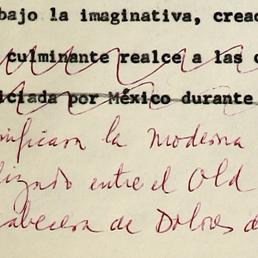 bajo la imaginativa, creac
culminante realce a las c
iciada por México durante
nificara la moderna
lizado entre el Old
abecera de Dolores de